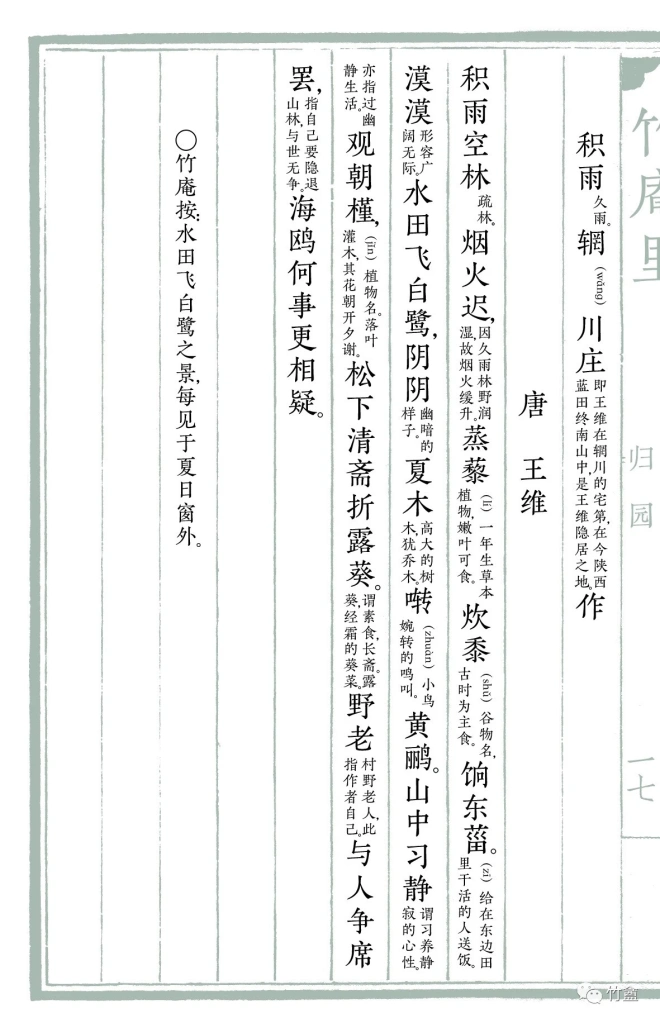 竹庵里
归园
一七
积雨久雨。辋(wǎng)川庄即王维在辋川的宅第,在今陕西蓝田终南山中,是王维隐居之地。作
唐 王维
积雨空林疏林。烟火迟,因久雨林野润湿,故烟火缓升。蒸藜(lí)一年生草本植物,嫩叶可食。炊黍(shǔ)谷物名,古时为主食。饷东菑。(zī)给在东边田里干活的人送饭。
漠漠形容广阔无际。水田飞白鹭,阴阴幽暗的样子。夏木高大的树木,犹乔木。啭(zhuàn)小鸟婉转的鸣叫。黄鹂。山中习静谓习养静寂的心性。
亦指过幽静生活。观朝槿,(jǐn)植物名。落叶灌木,其花朝开夕谢。松下清斋折露葵。谓素食,长斋。露葵,经霜的葵菜。野老村野老人,此指作者自己。与人争席
罢,指自己要隐退山林,与世无争。海鸥何事更相疑。
〇竹庵按:水田飞白鹭之景,每见于夏日窗外。
竹盦